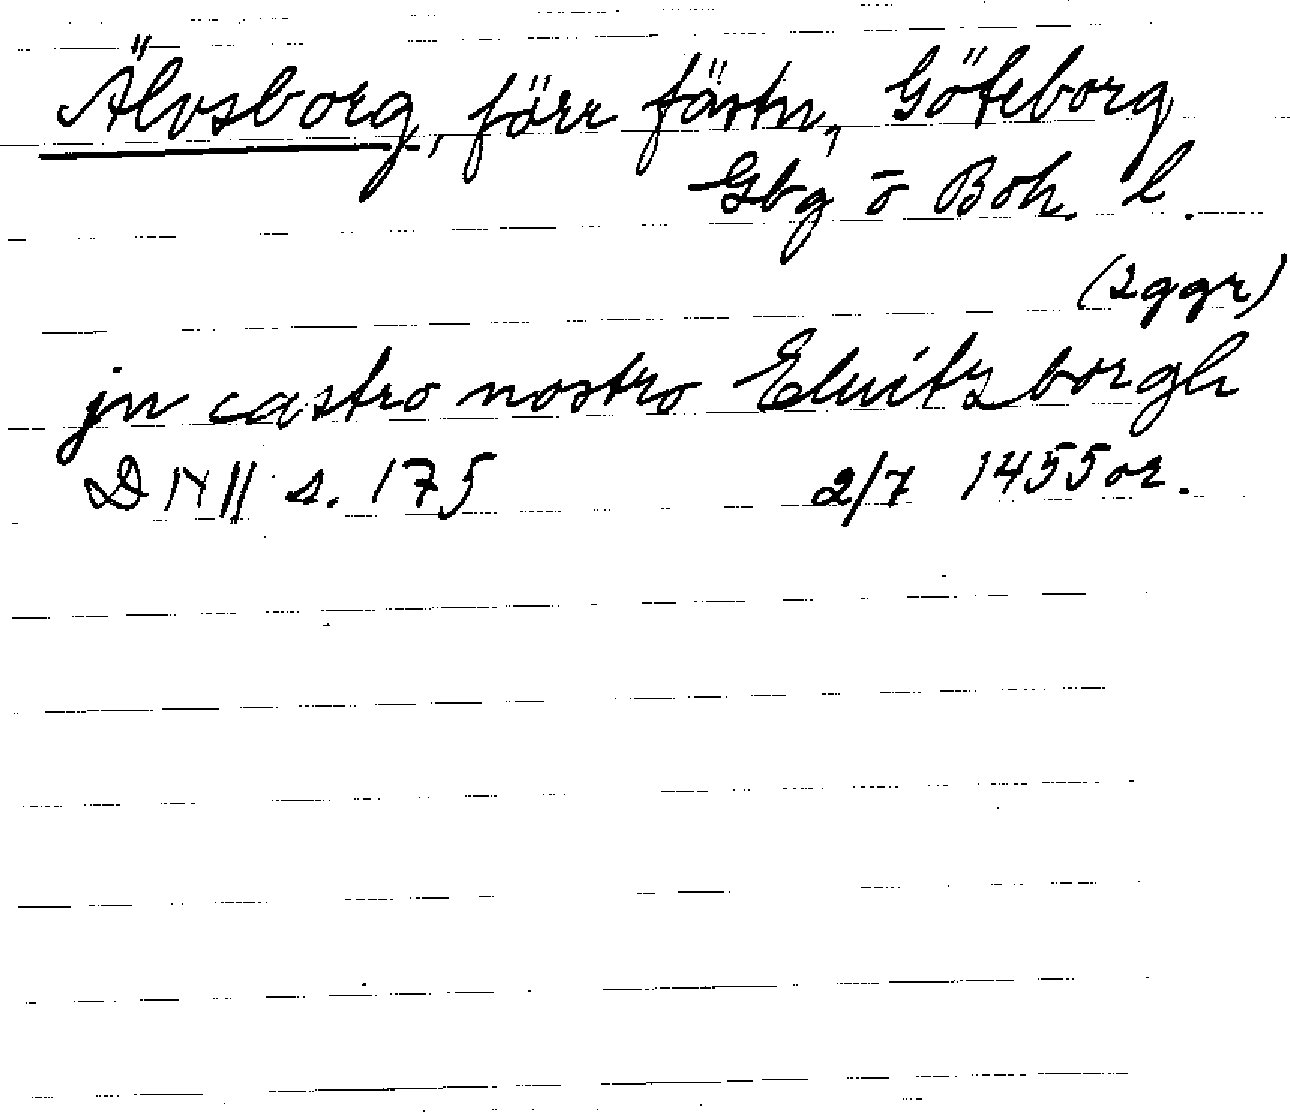 Älvsborg, förr fästn, Göteborg
Gbg o Boh. l.
(2 ggr)
jn castro nostro Eluitzborgh
DN II s. 175 2/7 1455 or.